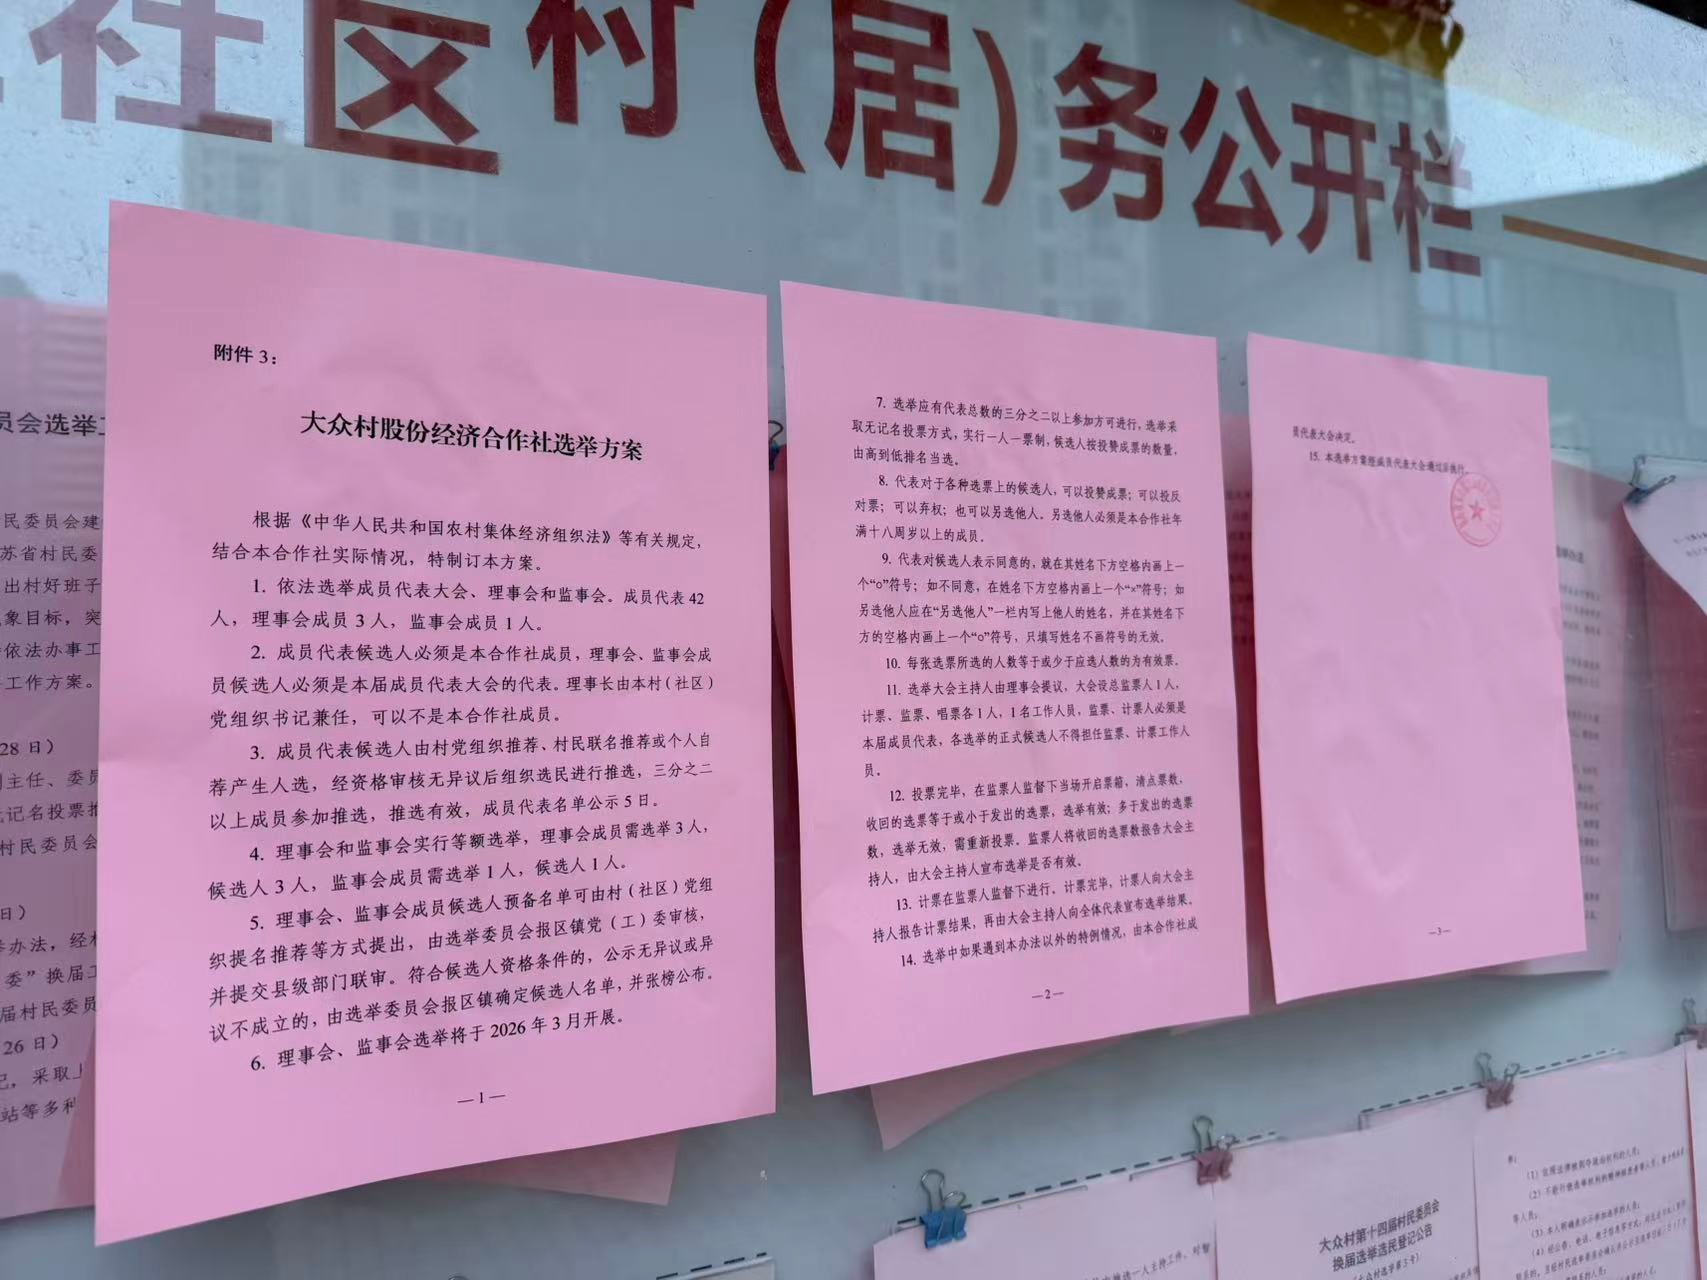 社区村(居)务公开栏
附件 3：
大众村股份经济合作社选举方案
根据《中华人民共和国农村集体经济组织法》等有关规定，
结合本合作社实际情况，特制订本方案。
1. 依法选举成员代表大会、理事会和监事会。成员代表 42
人，理事会成员 3 人，监事会成员 1 人。
2. 成员代表候选人必须是本合作社成员，理事会、监事会成
员候选人必须是本届成员代表大会的代表。理事长由本村（社区）
党组织书记兼任，可以不是本合作社成员。
3. 成员代表候选人由村党组织推荐、村民联名推荐或个人自
荐产生人选，经资格审核无异议后组织选民进行推选，三分之二
以上成员参加推选，推选有效，成员代表名单公示 5 日。
4. 理事会和监事会实行等额选举，理事会成员需选举 3 人，
候选人 3 人，监事会成员需选举 1 人，候选人 1 人。
5. 理事会、监事会成员候选人预备名单可由村（社区）党组
织提名推荐等方式提出，由选举委员会报区镇党（工）委审核，
并提交县级部门联审。符合候选人资格条件的，公示无异议或异
议不成立的，由选举委员会报区镇确定候选人名单，并张榜公布。
6. 理事会、监事会选举将于 2026 年 3 月开展。
—1—
7. 选举应有代表总数的三分之二以上参加方可进行，选举采
取无记名投票方式，实行一人一票制，候选人按投赞成票的数量，
由高到低排名当选。
8. 代表对于各种选票上的候选人，可以投赞成票；可以投反
对票；可以弃权；也可以另选他人。另选他人必须是本合作社年
满十八周岁以上的成员。
9. 代表对候选人表示同意的，就在其姓名下方空格内画上一
个“○”符号；如不同意，在姓名下方空格内画上一个“×”符号；如
另选他人应在“另选他人”一栏内写上他人的姓名，并在其姓名下
方的空格内画上一个“○”符号，只填写姓名不画符号的无效。
10. 每张选票所选的人数等于或少于应选人数的为有效票。
11. 选举大会主持人由理事会提议，大会设总监票人 1 人，
计票、监票、唱票各 1 人，1 名工作人员，监票、计票人必须是
本届成员代表，各选举的正式候选人不得担任监票、计票工作人
员。
12. 投票完毕，在监票人监督下当场开启票箱，清点票数，
收回的选票等于或小于发出的选票，选举有效；多于发出的选票
数，选举无效，需重新投票。监票人将收回的选票数报告大会主
持人，由大会主持人宣布选举是否有效。
13. 计票在监票人监督下进行。计票完毕，计票人向大会主
持人报告计票结果，再由大会主持人向全体代表宣布选举结果。
14. 选举中如果遇到本办法以外的特例情况，由本合作社成
—2—
员代表大会决定。
15. 本选举方案经成员代表大会通过后执行。
—3—
员会选举工
民委员会建
苏省村民委
出村好班子
象目标，突
依法办事工
工作方案。
28 日）
主任、委员
记名投票推
村民委员会
日）
举办法，经村
委”换届工
届村民委员
26 日）
记，采取上
站等多种
大众村第十四届村民委员会
换届选举选民登记公告